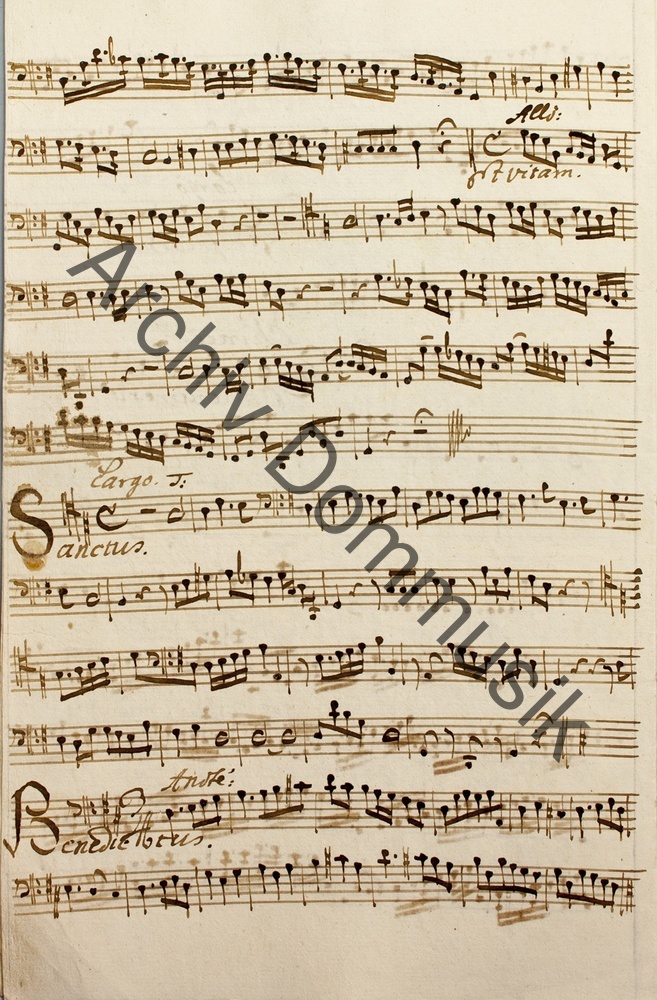 All̊:
Et vitam.
Largo. T:
Sanctus.
And̅te:
Benedictus.
Archiv Dommusik